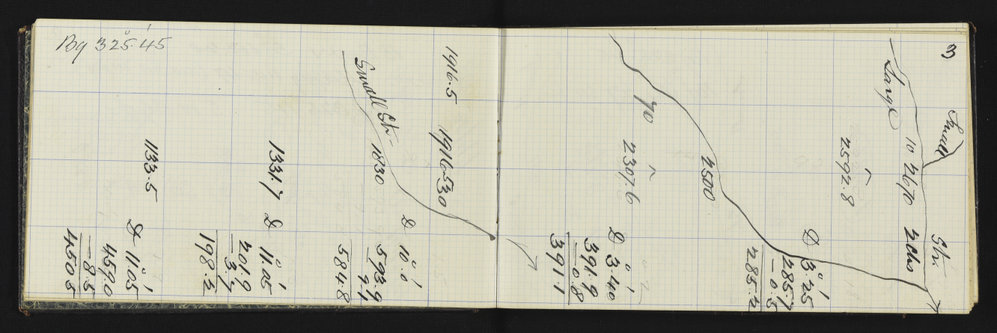 Bg 325° 45'
3
1133.5
D 11° 05'
459.0
8.5
450.5
1331.7
D 11° 05'
201.9
3.7
198.2
Small St.
1830
1916.5
1916-530
D 10° 0'
593.9
9.1
584.8
70
2307.6
D 3° 40'
391.9
0.8
391.1
2500
2592.8
D 3° 25'
285.7
0.5
285.2
Large
Small
10
2670
2 chs